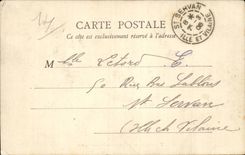 CARTE POSTALE
Ce côté est exclusivement réservé à l'adresse
ST SERVAN
ILLE ET VILAINE
M lle Lebord E.
50 Rue des Sablons
St Servan
Ille et Vilaine